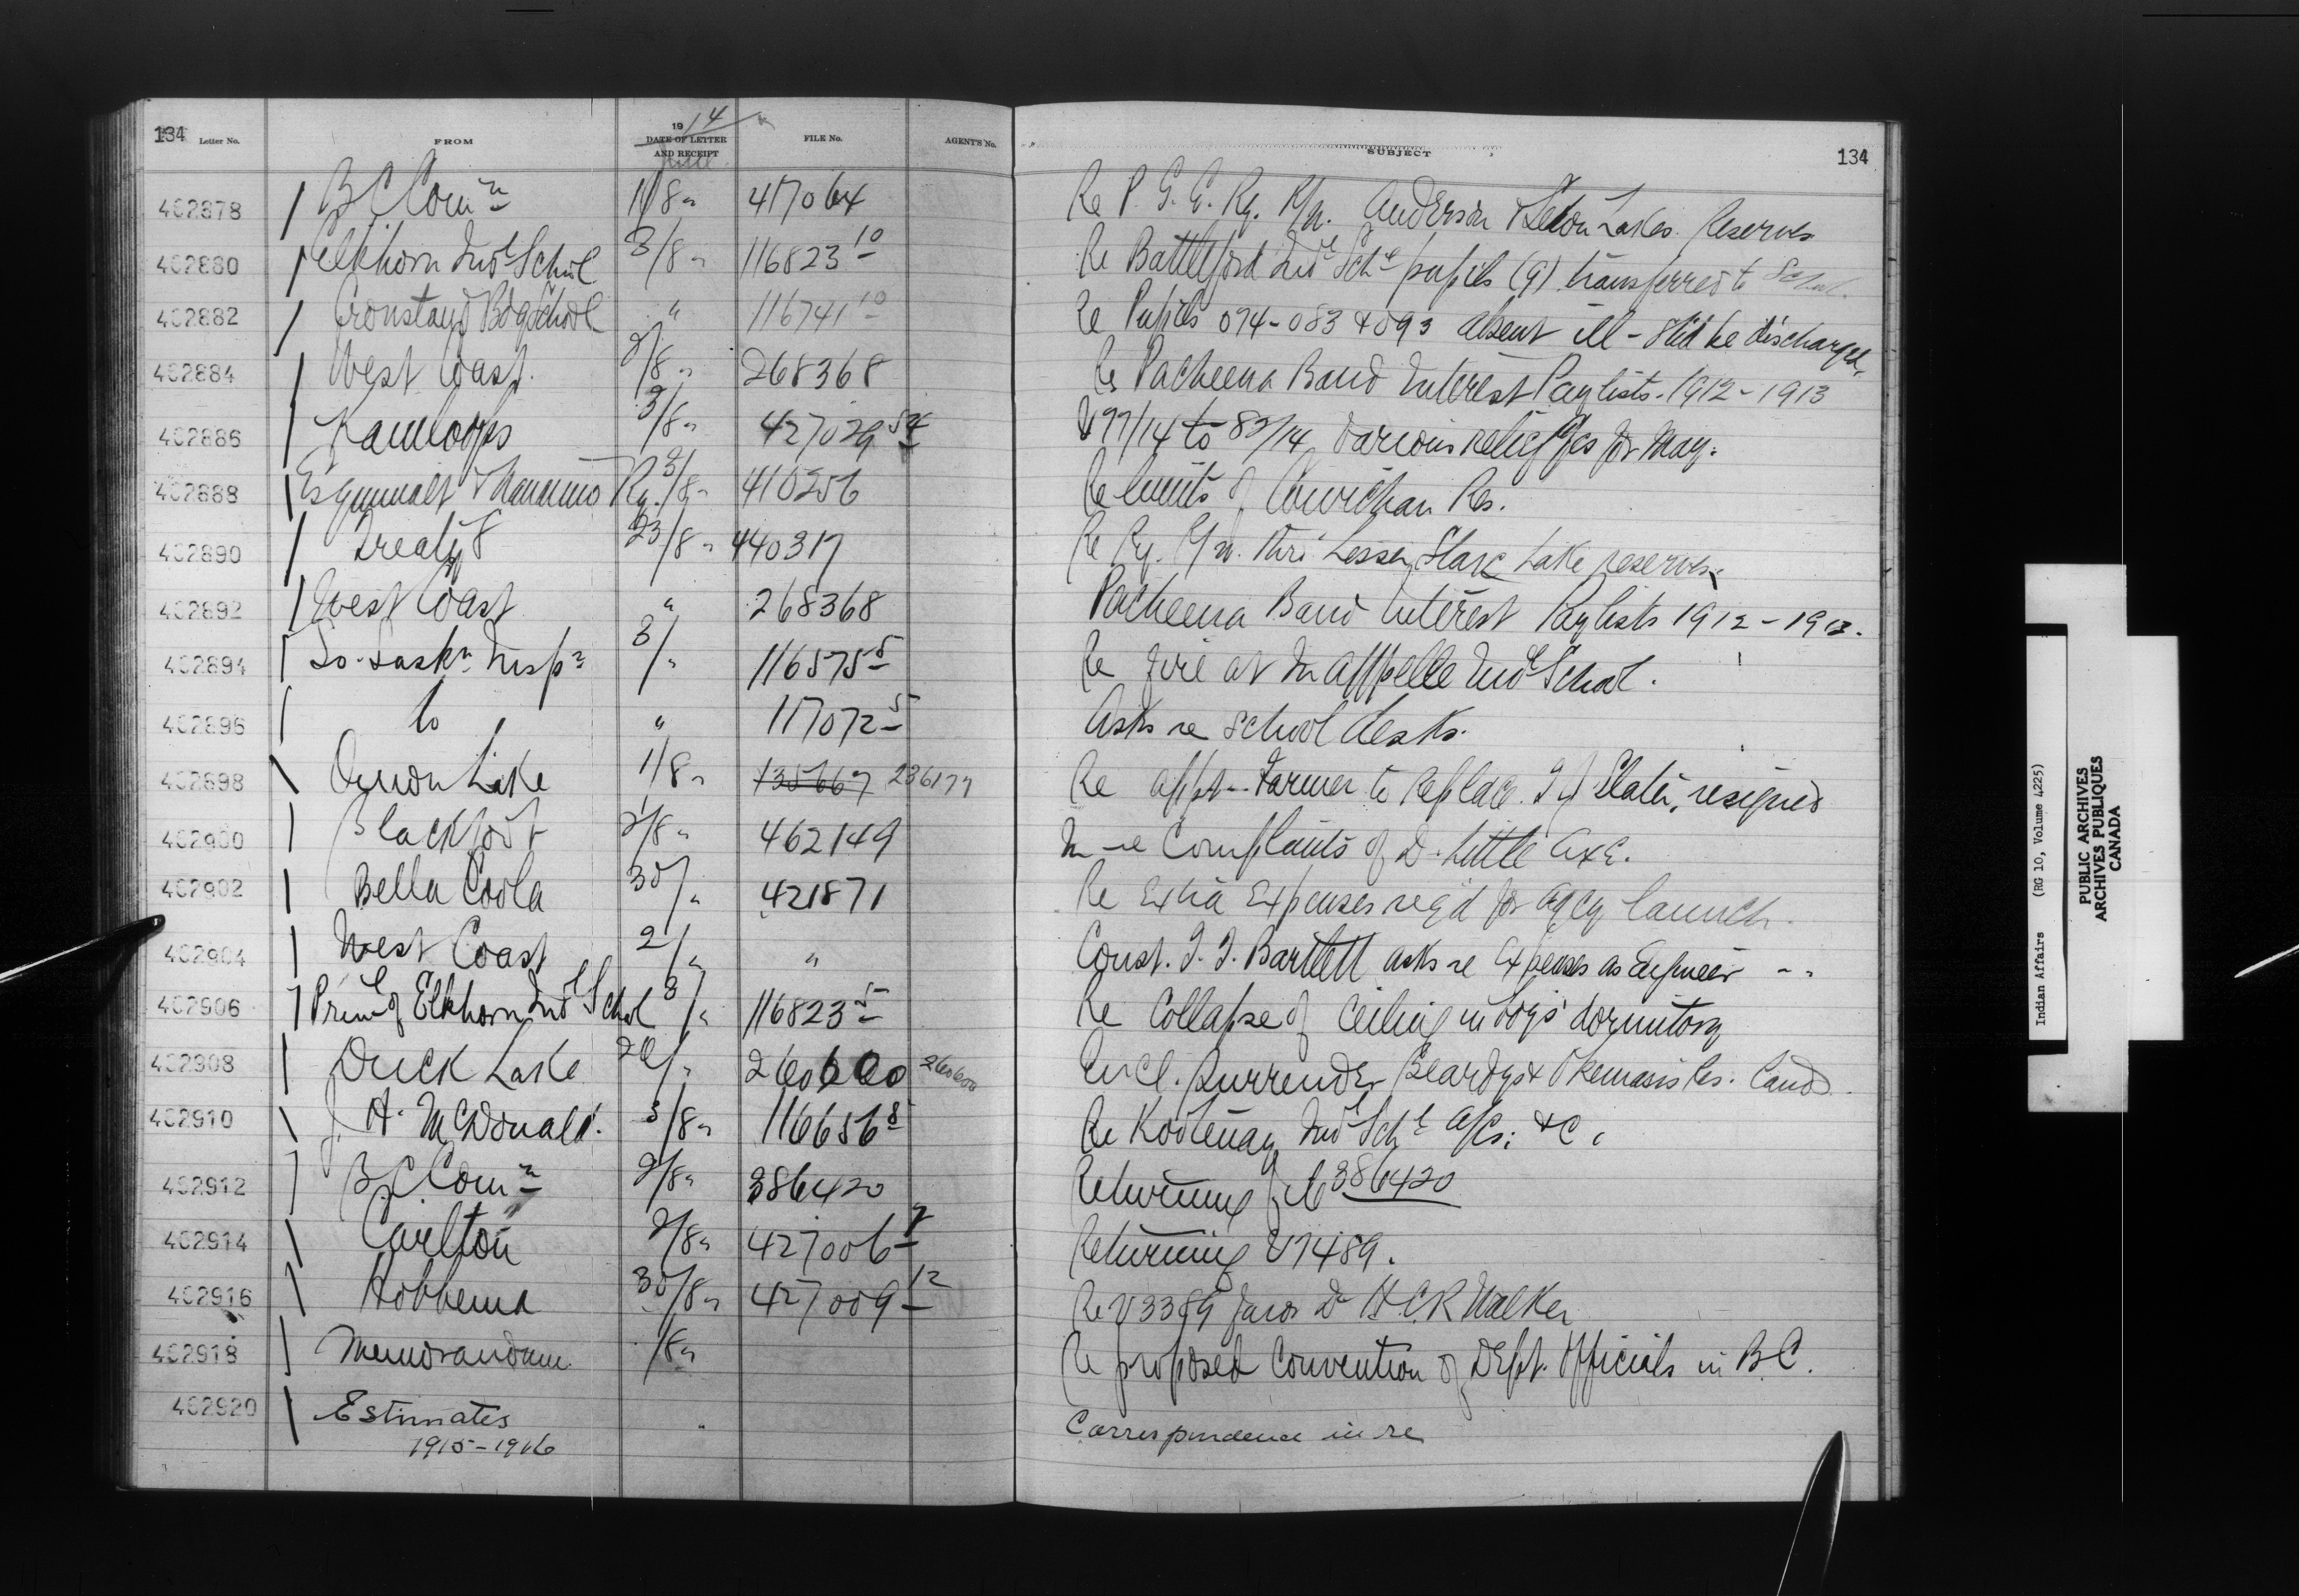 134 Letter No. FROM 1914 DATE OF LETTER AND RECEIPT June FILE No. AGENT'S No. SUBJECT 134
402878 B C Comn 1/8 " 417064 Re P. G. E. Ry. R/W. Anderson & Seton Lakes Reserves
402880 Elkhorn Indl School 3/8 " 116823 10 Re Battleford Indl Schl pupils (9) transferred to School.
402882 Cronstand Bdg School " 116741 10 Re Pupils 074-083 & 093 absent ill - Shd be discharged.
402884 West Coast. 2/8 " 268368 Re Pacheena Band Interest Paylists. 1912-1913
402886 Kamloops 3/8 " 427029 54 V 77/14 to 83/14 various relief for May.
402888 Esquimalt & Nanaimo Ry. 3/8 " 410256 Re limits of Cowichan Res.
402890 Treaty 8 23/8 " 440317 Re Ry. R/W. thro' Lesser Slave Lake reserves.
402892 West Coast " 268368 Pacheena Band Interest Paylists 1912-1913.
402894 So. Saskn Inspn 3/ " 116575 5 Re fire at Qu'Appelle Indl School.
402896 Do " 117072 5 Asks re School desks.
402898 Onion Lake 1/8 " 135667 236177 Re appt. Farmer to replace Slater, resigned
402900 Blackfoot 2/8 " 462149 re Complaints of D. Little Axe.
402902 Bella Coola 30/ " 421871 Re Extra Expenses reqd for Agcy launch.
402904 West Coast 2/ " " Const. Bartlett asks re Expenses as Engineer - "
402906 Prinl of Elkhorn Indl School 3/ " 116823 5 Re Collapse of Ceiling in boys' dormitory
402908 Duck Lake 20/ " 260600 260600 Encl. Surrender Beardys & Okemasis Res. Lands.
402910 J. A. McDonald. 3/8 " 116656 8 Re Kootenay Indl Schl A/cs. &c.
402912 B C Comn 2/8 " 386420 Returning file 386420
402914 Carlton 2/8 " 427006 7 Returning V 7489.
402916 Hobbema 30/8 " 427009 12 Re V 3389 favor Dr H.C.R Walker
402918 Memorandum /8 " Re proposed Convention of Dept. Officials in B.C.
402920 Estimates " Correspondence in re
1915-1916
Indian Affairs (RG 10, Volume 4225)
PUBLIC ARCHIVES
ARCHIVES PUBLIQUES
CANADA